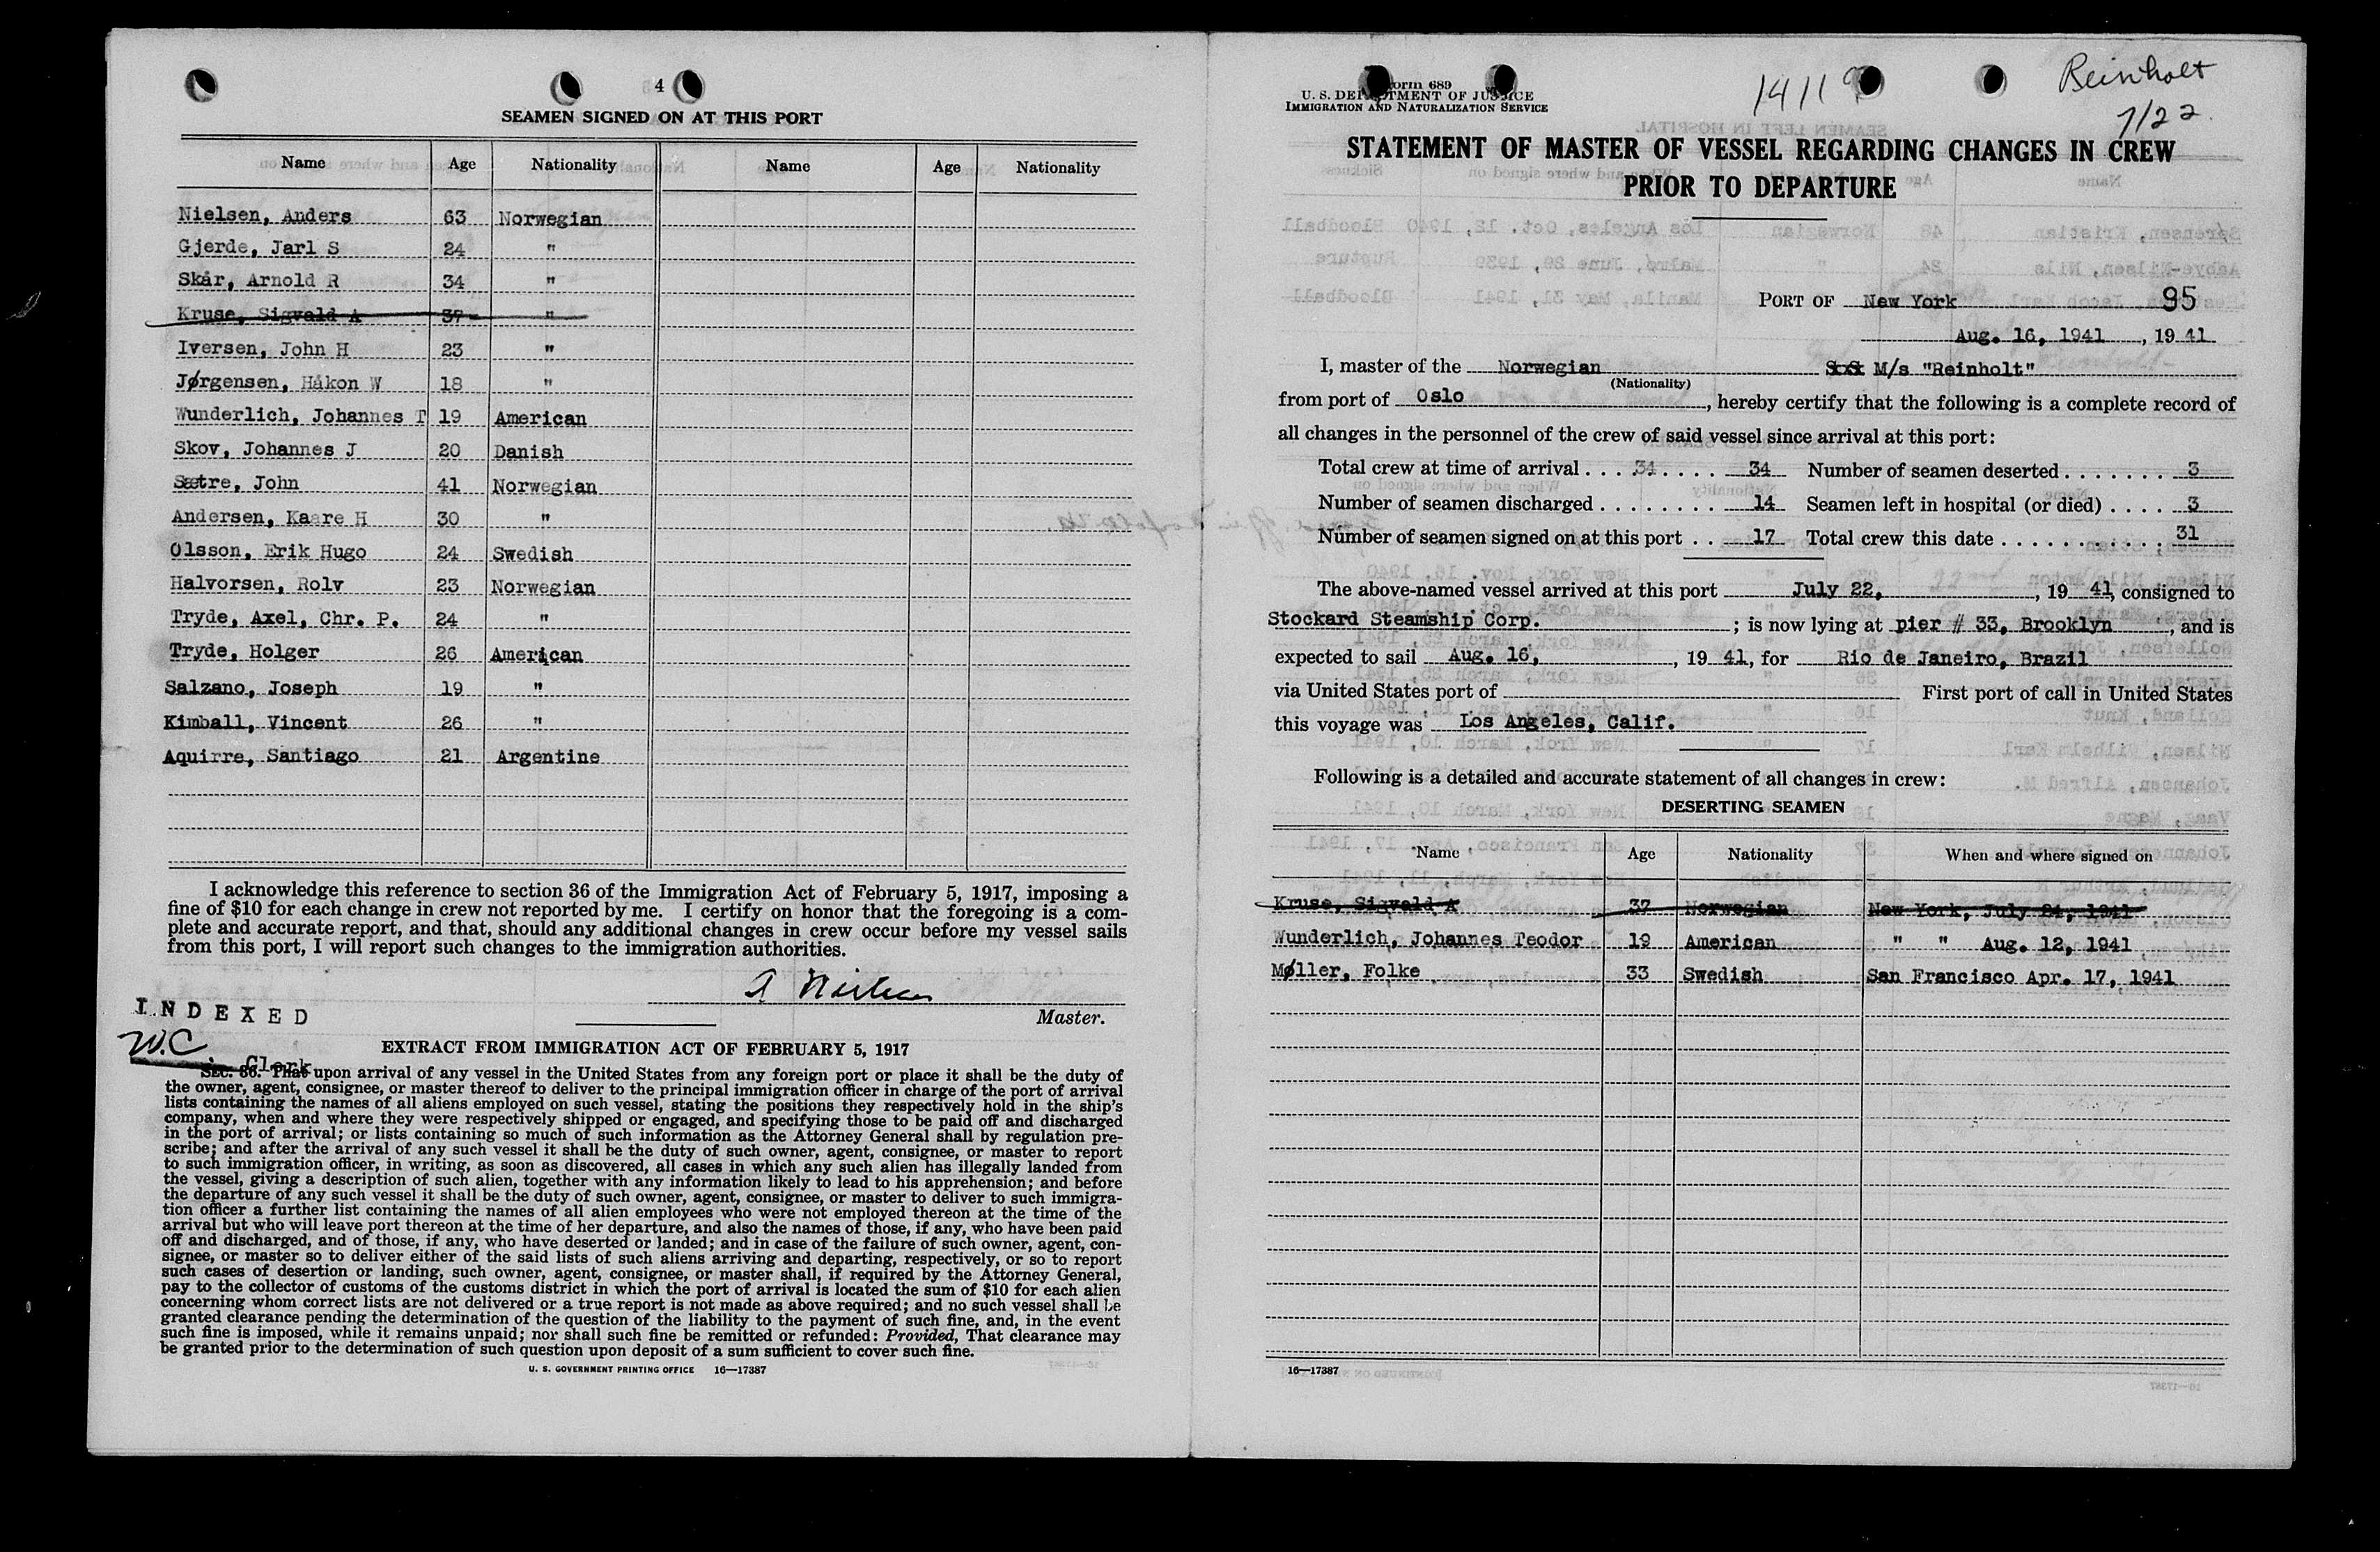 4
SEAMEN SIGNED ON AT THIS PORT
Name Age Nationality Name Age Nationality
Nielsen, Anders 63 Norwegian
Gjerde, Jarl S 24 "
Skår, Arnold R 34 "
Kruse, Sigvald A 37 "
Iversen, John H 23 "
Jørgensen, Håkon W 18 "
Wunderlich, Johannes T 19 American
Skov, Johannes J 20 Danish
Sætre, John 41 Norwegian
Andersen, Kaare H 30 "
Olsson, Erik Hugo 24 Swedish
Halvorsen, Rolv 23 Norwegian
Tryde, Axel, Chr. P. 24 "
Tryde, Holger 26 American
Salzano, Joseph 19 "
Kimball, Vincent 26 "
Aquirre, Santiago 21 Argentine
I acknowledge this reference to section 36 of the Immigration Act of February 5, 1917, imposing a
fine of $10 for each change in crew not reported by me. I certify on honor that the foregoing is a com-
plete and accurate report, and that, should any additional changes in crew occur before my vessel sails
from this port, I will report such changes to the immigration authorities.
A Nielsen
Master.
INDEXED
W.C
Clerk
EXTRACT FROM IMMIGRATION ACT OF FEBRUARY 5, 1917
SEC. 36. That upon arrival of any vessel in the United States from any foreign port or place it shall be the duty of
the owner, agent, consignee, or master thereof to deliver to the principal immigration officer in charge of the port of arrival
lists containing the names of all aliens employed on such vessel, stating the positions they respectively hold in the ship's
company, when and where they were respectively shipped or engaged, and specifying those to be paid off and discharged
in the port of arrival; or lists containing so much of such information as the Attorney General shall by regulation pre-
scribe; and after the arrival of any such vessel it shall be the duty of such owner, agent, consignee, or master to report
to such immigration officer, in writing, as soon as discovered, all cases in which any such alien has illegally landed from
the vessel, giving a description of such alien, together with any information likely to lead to his apprehension; and before
the departure of any such vessel it shall be the duty of such owner, agent, consignee, or master to deliver to such immigra-
tion officer a further list containing the names of all alien employees who were not employed thereon at the time of the
arrival but who will leave port thereon at the time of her departure, and also the names of those, if any, who have been paid
off and discharged, and of those, if any, who have deserted or landed; and in case of the failure of such owner, agent, con-
signee, or master so to deliver either of the said lists of such aliens arriving and departing, respectively, or so to report
such cases of desertion or landing, such owner, agent, consignee, or master shall, if required by the Attorney General,
pay to the collector of customs of the customs district in which the port of arrival is located the sum of $10 for each alien
concerning whom correct lists are not delivered or a true report is not made as above required; and no such vessel shall be
granted clearance pending the determination of the question of the liability to the payment of such fine, and, in the event
such fine is imposed, while it remains unpaid; nor shall such fine be remitted or refunded: Provided, That clearance may
be granted prior to the determination of such question upon deposit of a sum sufficient to cover such fine.
U. S. GOVERNMENT PRINTING OFFICE 16—17387
Form 689
U. S. DEPARTMENT OF JUSTICE
IMMIGRATION AND NATURALIZATION SERVICE
14119
Reinholt
7/22
STATEMENT OF MASTER OF VESSEL REGARDING CHANGES IN CREW
PRIOR TO DEPARTURE
PORT OF New York 95
Aug. 16, 1941, 19 41
I, master of the Norwegian SxS M/s "Reinholt"
(Nationality)
from port of Oslo, hereby certify that the following is a complete record of
all changes in the personnel of the crew of said vessel since arrival at this port:
Total crew at time of arrival . . . 34 . . . . 34 Number of seamen deserted . . . . . . . 3
Number of seamen discharged . . . . . . . . 14 Seamen left in hospital (or died) . . . . 3
Number of seamen signed on at this port . . 17 Total crew this date . . . . . . . . . . . 31
The above-named vessel arrived at this port July 22, 19 41, consigned to
Stockard Steamship Corp. ; is now lying at pier # 33, Brooklyn, and is
expected to sail Aug. 16, 19 41, for Rio de Janeiro, Brazil
via United States port of First port of call in United States
this voyage was Los Angeles, Calif.
Following is a detailed and accurate statement of all changes in crew:
DESERTING SEAMEN
Name Age Nationality When and where signed on
Kruse, Sigvald A 37 Norwegian New York, July 24, 1941
Wunderlich, Johannes Teodor 19 American " " Aug. 12, 1941
Møller, Folke 33 Swedish San Francisco Apr. 17, 1941
16—17387